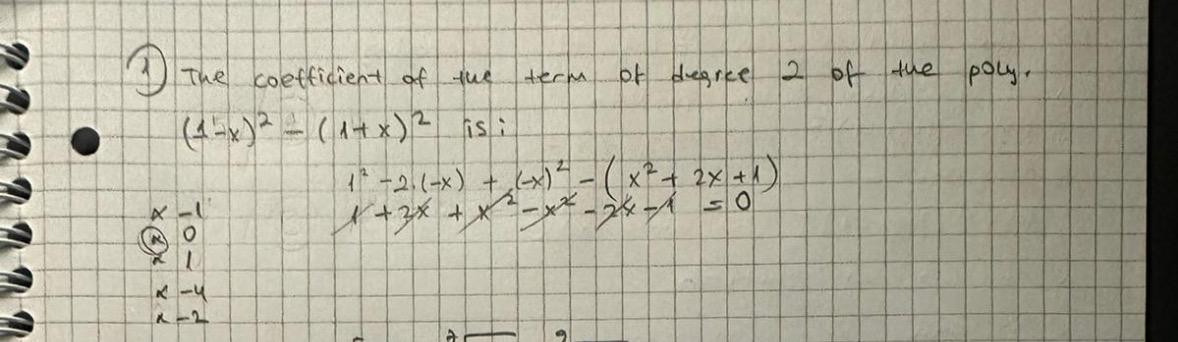 1) The coefficient of the term of degree 2 of the poly.
(1-x)² - (1+x)² is:
1² - 2.(-x) + (-x)² - (x² + 2x + 1)
1 + 2x + x² - x² - 2x - 1 = 0
x -1
x 0
x 1
x -4
x -2